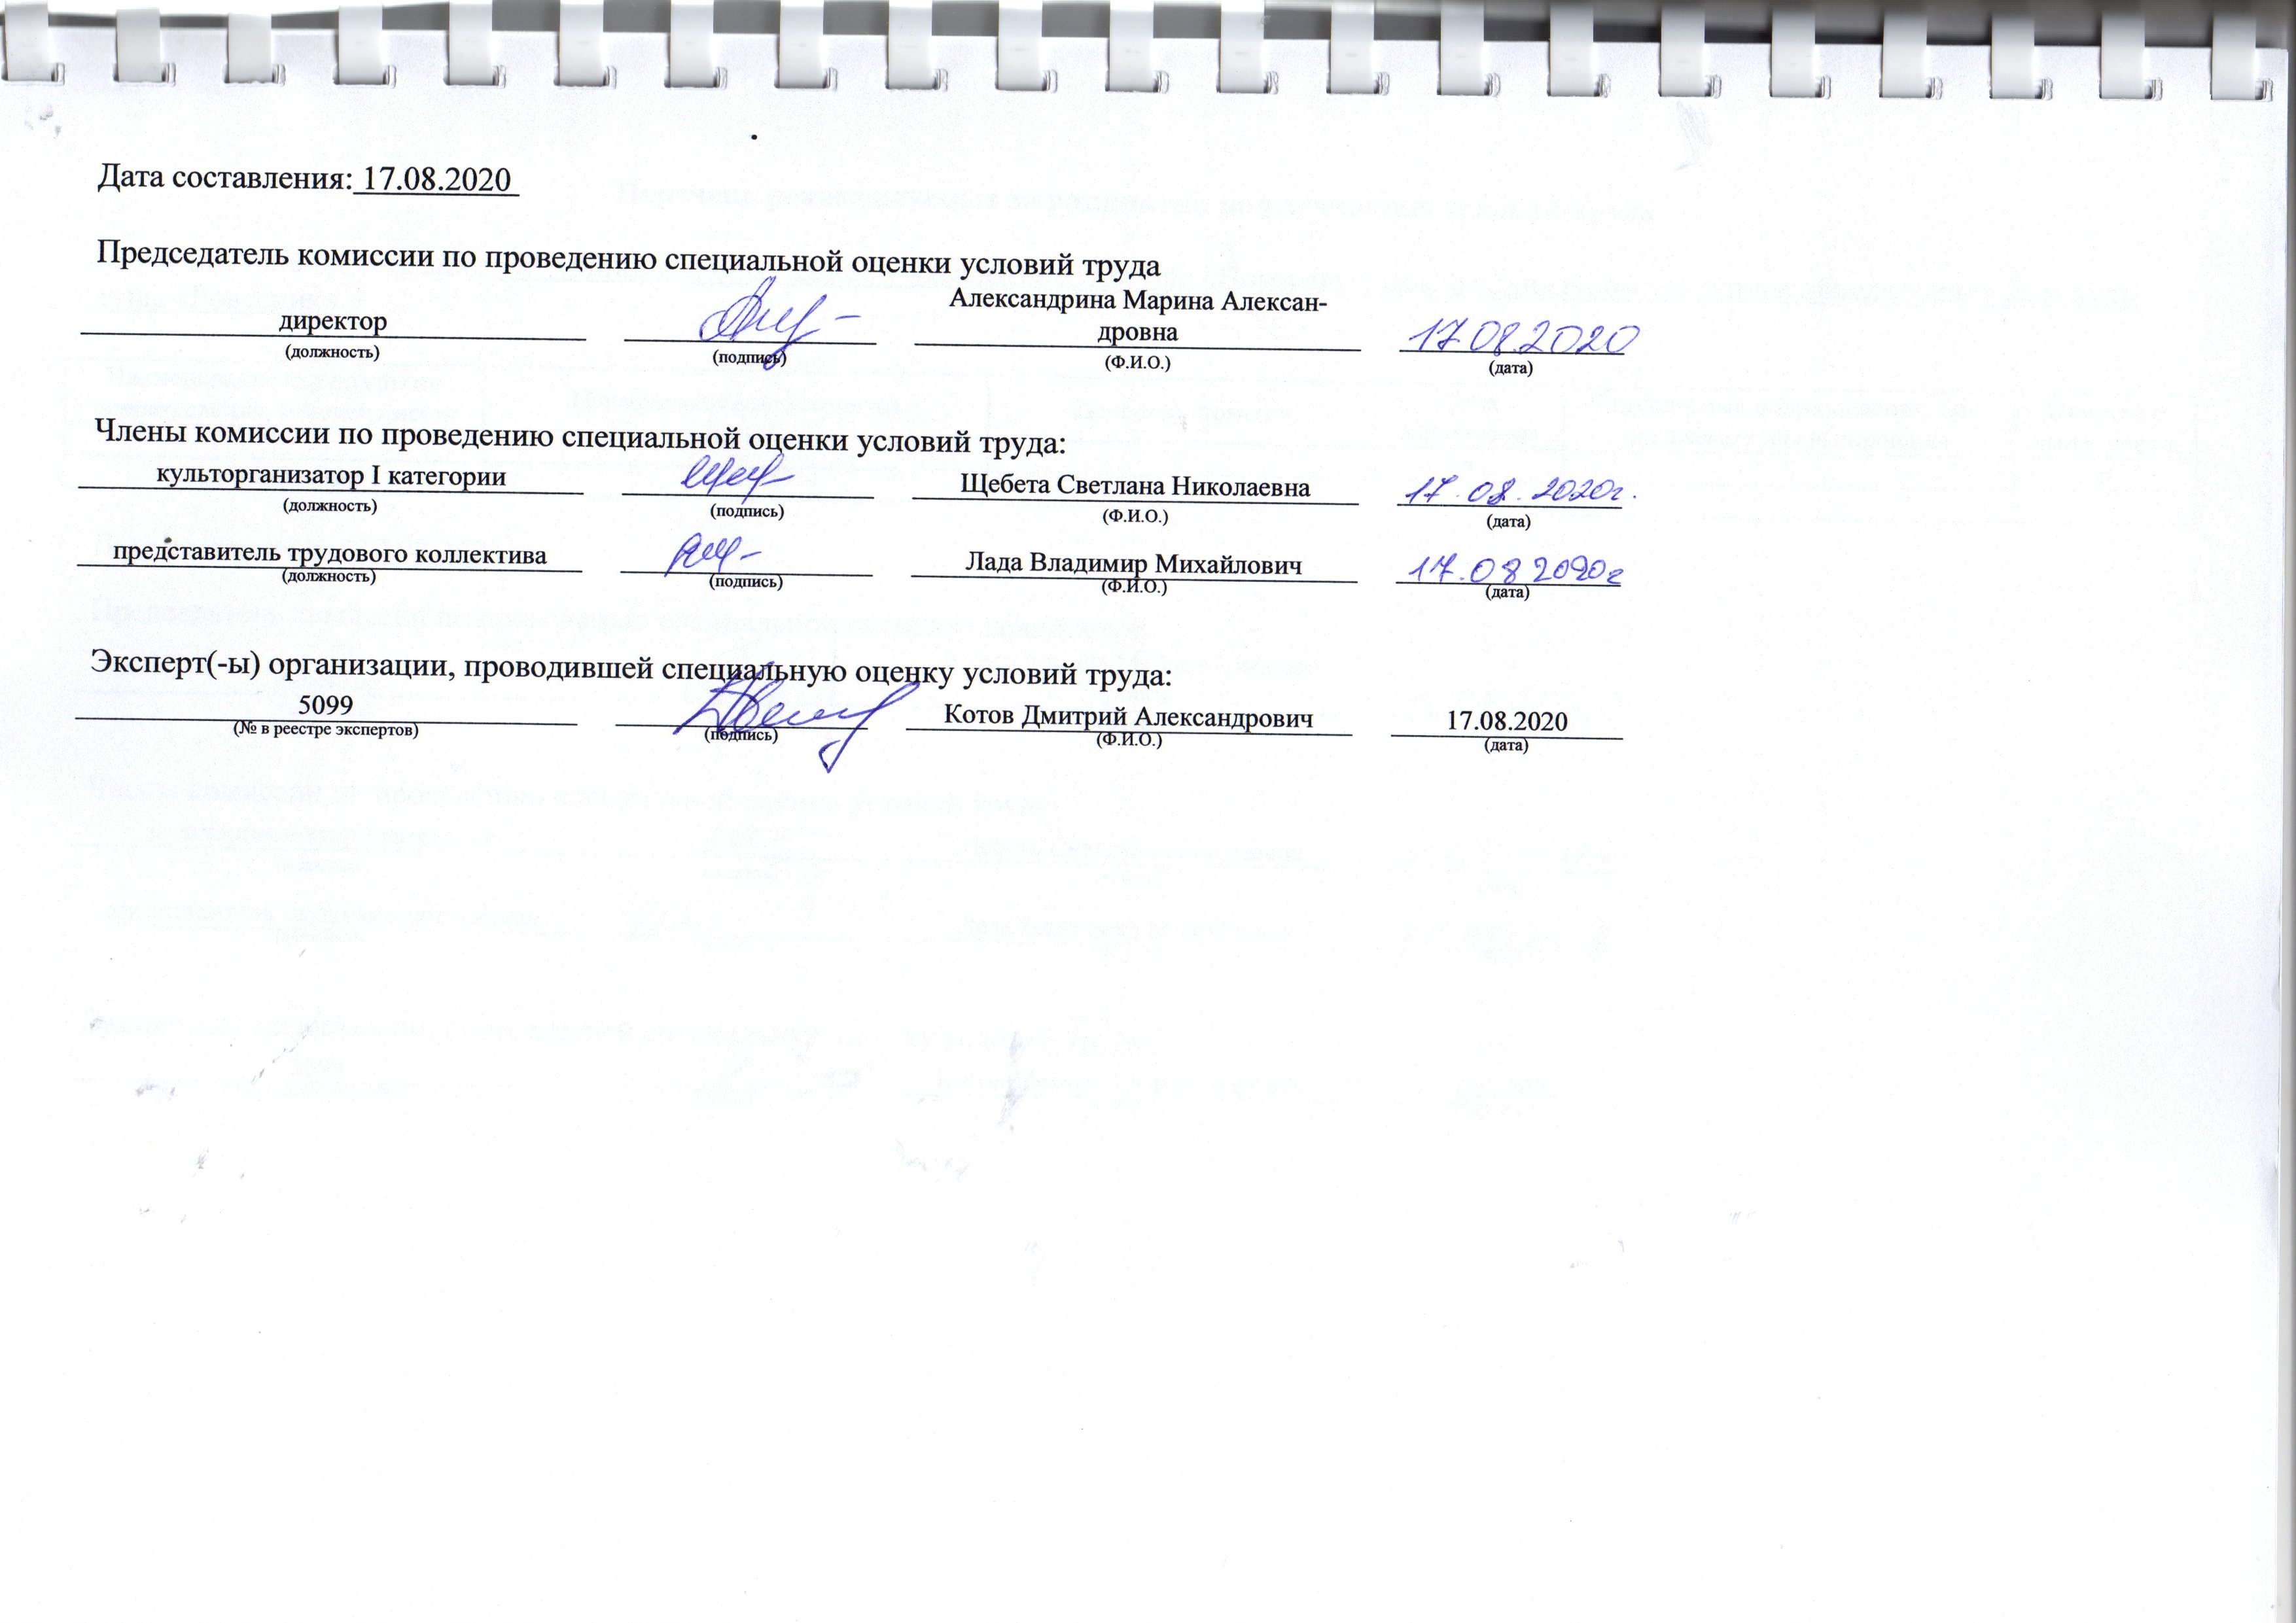 Дата составления: 17.08.2020
Председатель комиссии по проведению специальной оценки условий труда
директор Александрина Марина Алексан-
дровна 17.08.2020
(должность) (подпись) (Ф.И.О.) (дата)
Члены комиссии по проведению специальной оценки условий труда:
культорганизатор I категории Щебета Светлана Николаевна 17.08.2020г.
(должность) (подпись) (Ф.И.О.) (дата)
представитель трудового коллектива Лада Владимир Михайлович 17.08 2020г
(должность) (подпись) (Ф.И.О.) (дата)
Эксперт(-ы) организации, проводившей специальную оценку условий труда:
5099 Котов Дмитрий Александрович 17.08.2020
(№ в реестре экспертов) (подпись) (Ф.И.О.) (дата)